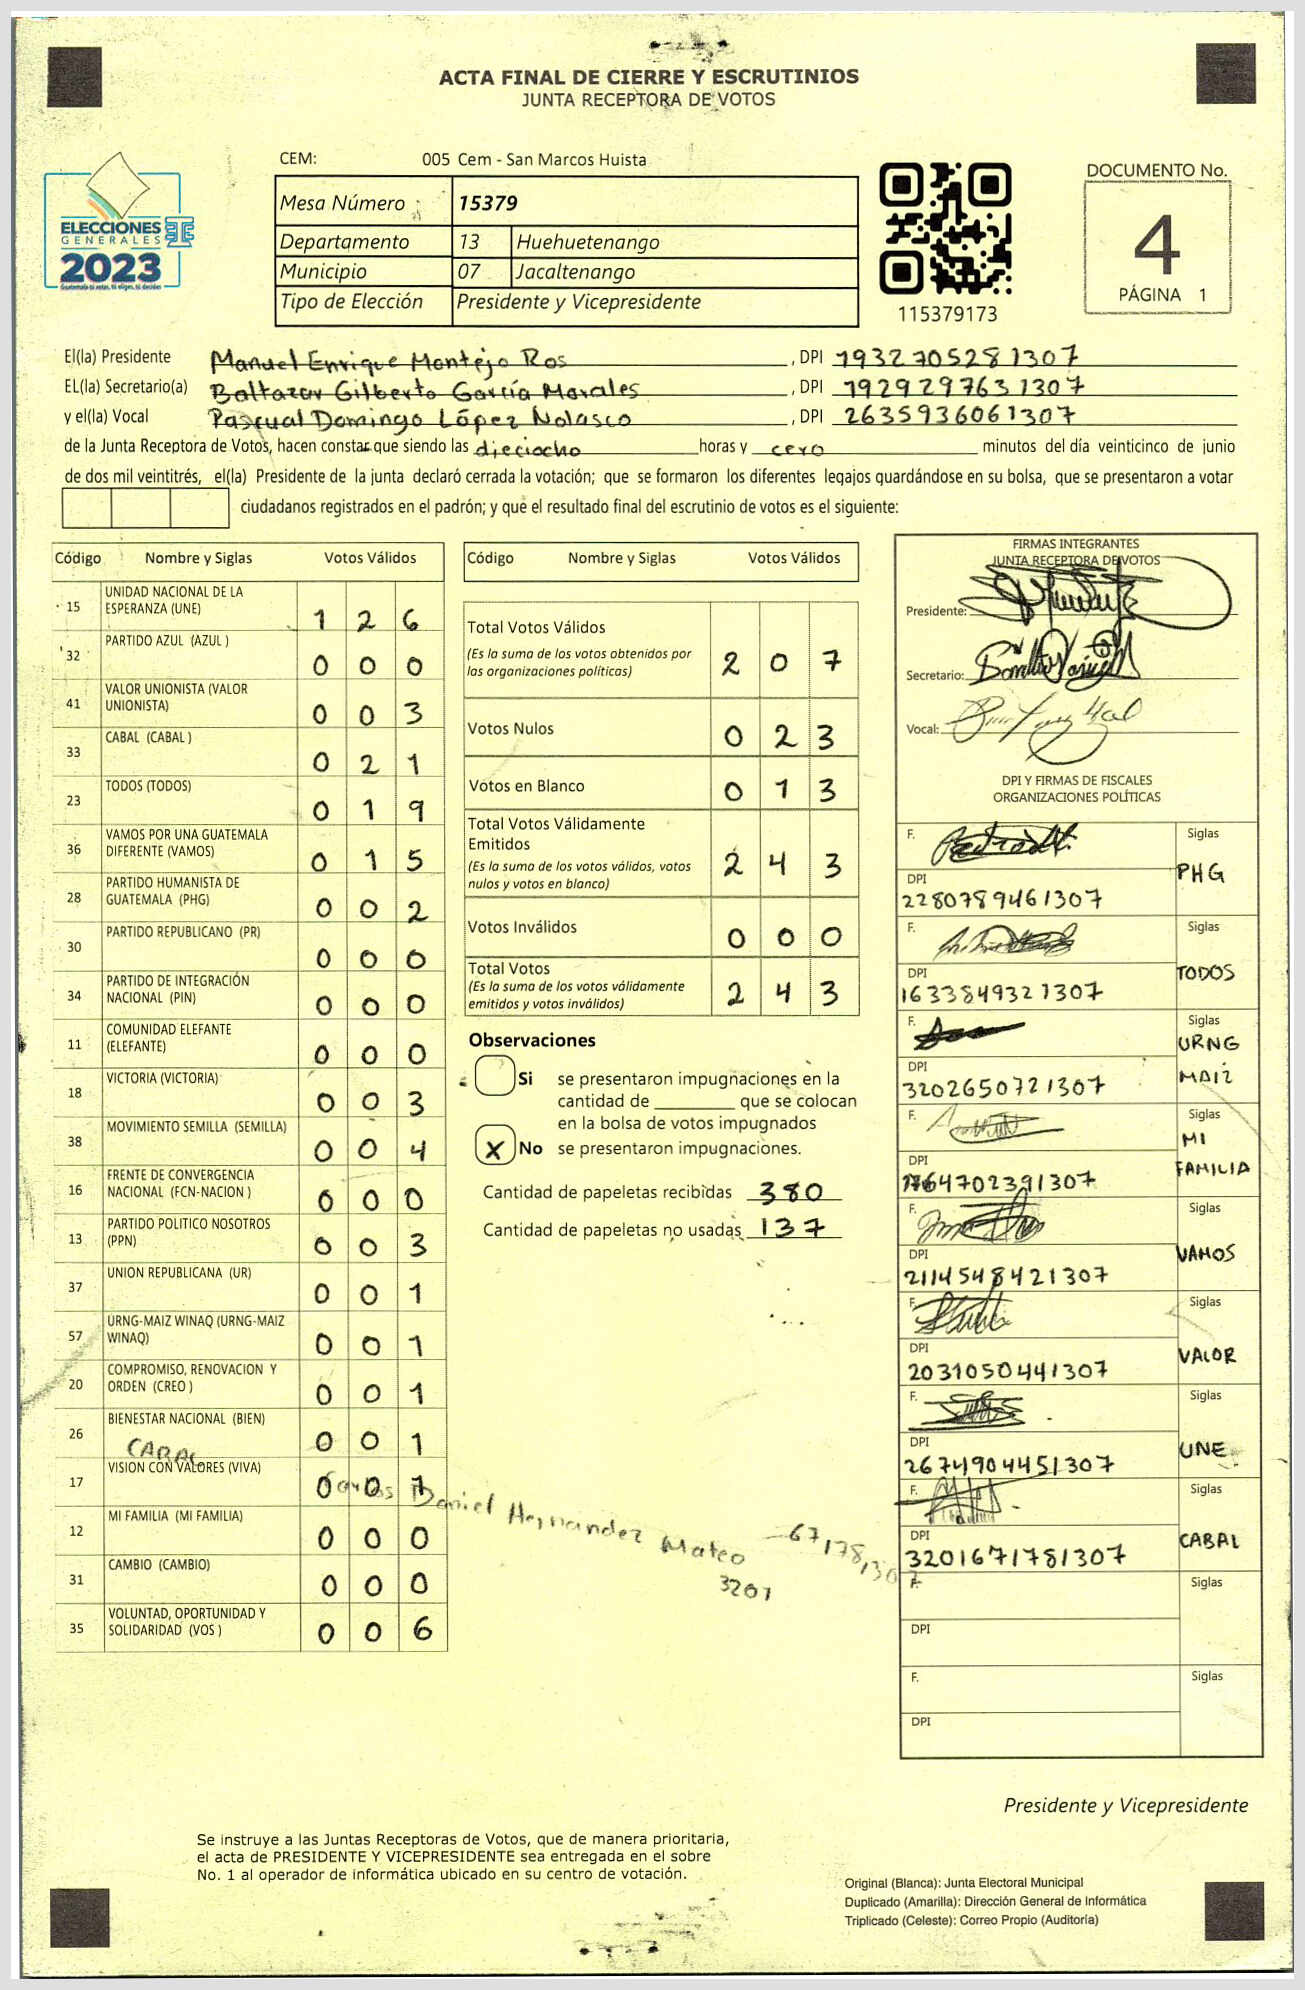 ACTA FINAL DE CIERRE Y ESCRUTINIOS
JUNTA RECEPTORA DE VOTOS
ELECCIONES
GENERALES
2023
Guatemala tú votas, tú eliges, tú decides
CEM: 005 Cem - San Marcos Huista
Mesa Número 15379
Departamento 13 Huehuetenango
Municipio 07 Jacaltenango
Tipo de Elección Presidente y Vicepresidente
115379173
DOCUMENTO No.
4
PÁGINA 1
El(la) Presidente Manuel Enrique Montejo Ros , DPI 1932705281307
EL(la) Secretario(a) Baltazar Gilberto García Morales , DPI 1929297631307
y el(la) Vocal Pascual Domingo López Nolasco , DPI 2635936061307
de la Junta Receptora de Votos, hacen constar que siendo las dieciocho horas y cero minutos del día veinticinco de junio
de dos mil veintitrés, el(la) Presidente de la junta declaró cerrada la votación; que se formaron los diferentes legajos guardándose en su bolsa, que se presentaron a votar
ciudadanos registrados en el padrón; y que el resultado final del escrutinio de votos es el siguiente:
Código Nombre y Siglas Votos Válidos
15 UNIDAD NACIONAL DE LA
ESPERANZA (UNE) 1 2 6
32 PARTIDO AZUL (AZUL ) 0 0 0
41 VALOR UNIONISTA (VALOR
UNIONISTA) 0 0 3
33 CABAL (CABAL ) 0 2 1
23 TODOS (TODOS) 0 1 9
36 VAMOS POR UNA GUATEMALA
DIFERENTE (VAMOS) 0 1 5
28 PARTIDO HUMANISTA DE
GUATEMALA (PHG) 0 0 2
30 PARTIDO REPUBLICANO (PR) 0 0 0
34 PARTIDO DE INTEGRACIÓN
NACIONAL (PIN) 0 0 0
11 COMUNIDAD ELEFANTE
(ELEFANTE) 0 0 0
18 VICTORIA (VICTORIA) 0 0 3
38 MOVIMIENTO SEMILLA (SEMILLA) 0 0 4
16 FRENTE DE CONVERGENCIA
NACIONAL (FCN-NACION ) 0 0 0
13 PARTIDO POLITICO NOSOTROS
(PPN) 0 0 3
37 UNION REPUBLICANA (UR) 0 0 1
57 URNG-MAIZ WINAQ (URNG-MAIZ
WINAQ) 0 0 1
20 COMPROMISO, RENOVACION Y
ORDEN (CREO ) 0 0 1
26 BIENESTAR NACIONAL (BIEN) 0 0 1
CABAL
17 VISION CON VALORES (VIVA) 0 0 7
Carlos Daniel Hernandez Mateo
67,178,1307
3201
12 MI FAMILIA (MI FAMILIA) 0 0 0
31 CAMBIO (CAMBIO) 0 0 0
35 VOLUNTAD, OPORTUNIDAD Y
SOLIDARIDAD (VOS ) 0 0 6
Código Nombre y Siglas Votos Válidos
Total Votos Válidos
(Es la suma de los votos obtenidos por
las organizaciones políticas) 2 0 7
Votos Nulos 0 2 3
Votos en Blanco 0 1 3
Total Votos Válidamente
Emitidos
(Es la suma de los votos válidos, votos
nulos y votos en blanco) 2 4 3
Votos Inválidos 0 0 0
Total Votos
(Es la suma de los votos válidamente
emitidos y votos inválidos) 2 4 3
Observaciones
Si se presentaron impugnaciones en la
cantidad de ________ que se colocan
en la bolsa de votos impugnados
X No se presentaron impugnaciones.
Cantidad de papeletas recibidas 380
Cantidad de papeletas no usadas 137
FIRMAS INTEGRANTES
JUNTA RECEPTORA DE VOTOS
Presidente:
Secretario:
Vocal:
DPI Y FIRMAS DE FISCALES
ORGANIZACIONES POLÍTICAS
F. Siglas
PHG
DPI
2280789461307
F. Siglas
TODOS
DPI
1633849321307
F. Siglas
URNG
MAIZ
DPI
3202650721307
F. Siglas
MI
FAMILIA
DPI
1764702391307
F. Siglas
VAMOS
DPI
2114548421307
F. Siglas
VALOR
DPI
2031050441307
F. Siglas
UNE
DPI
2674904451307
F. Siglas
CABAL
DPI
3201671781307
F. Siglas
DPI
F. Siglas
DPI
Presidente y Vicepresidente
Se instruye a las Juntas Receptoras de Votos, que de manera prioritaria,
el acta de PRESIDENTE Y VICEPRESIDENTE sea entregada en el sobre
No. 1 al operador de informática ubicado en su centro de votación.
Original (Blanca): Junta Electoral Municipal
Duplicado (Amarilla): Dirección General de Informática
Triplicado (Celeste): Correo Propio (Auditoría)